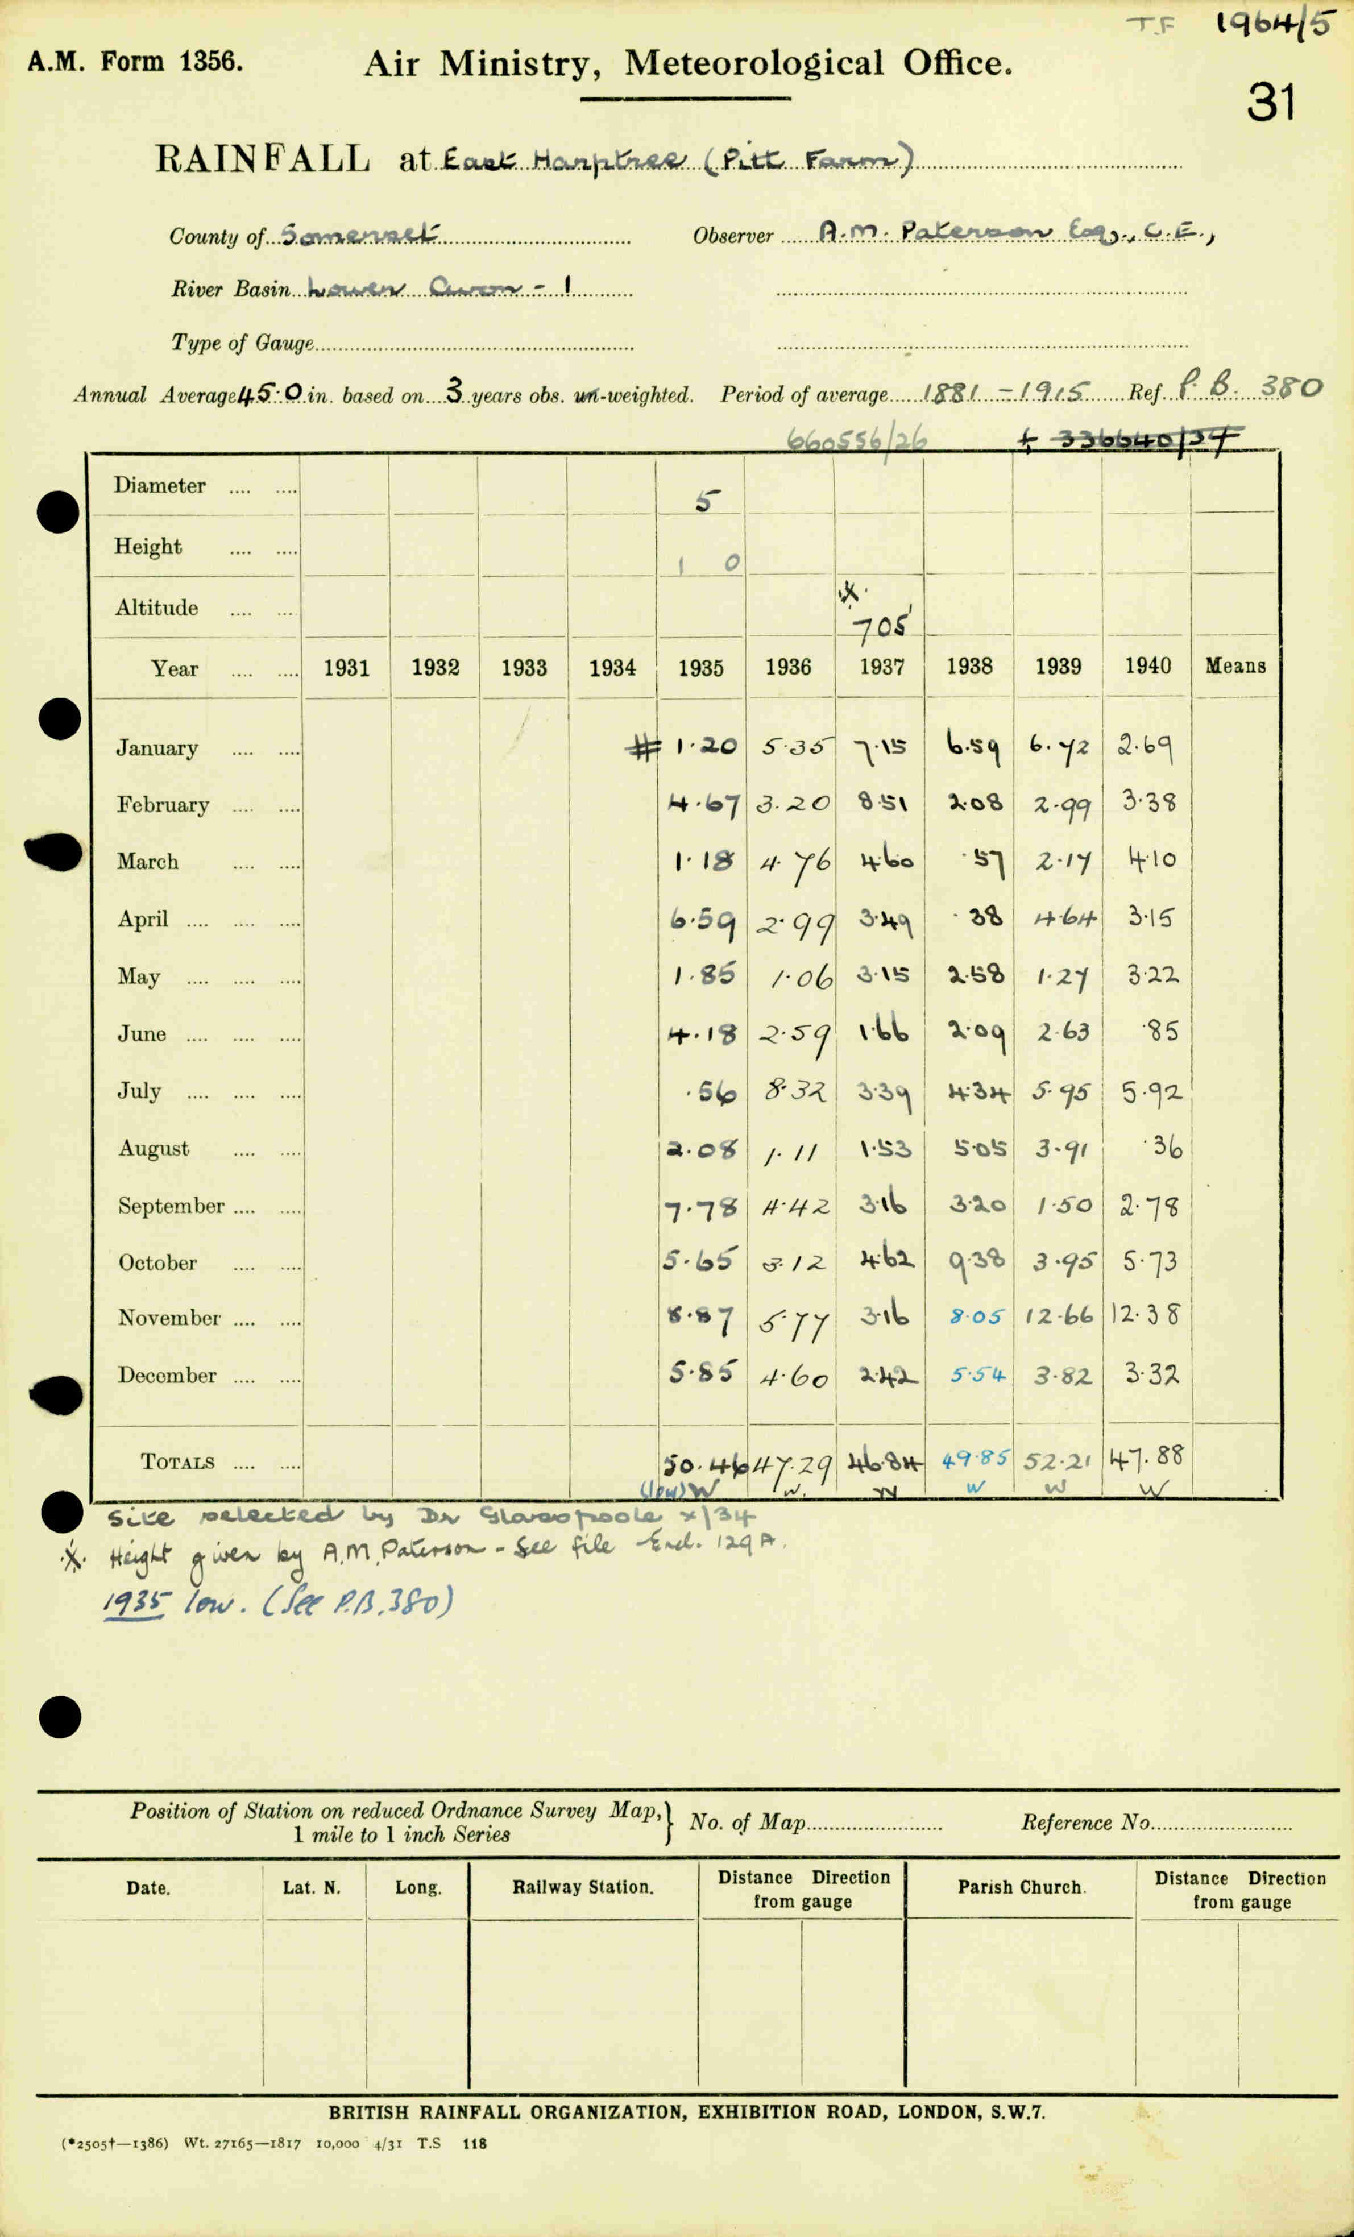 T.F 1964/5
A.M. Form 1356. Air Ministry, Meteorological Office.
31
RAINFALL at East Harptree (Pitt Farm)
County of Somerset Observer A.M. Paterson Esq., C.E.,
River Basin Lower Avon - 1
Type of Gauge
Annual Average 45.0 in. based on 3 years obs. un-weighted. Period of average 1881 - 1915 Ref. P.B. 380
660556/26 + 336640/34
Diameter .... .... 5
Height .... .... 1 0
Altitude .... .... 705'
Year .... .... 1931 1932 1933 1934 1935 1936 1937 1938 1939 1940 Means
January .... .... # 1.20 5.35 7.15 6.59 6.72 2.69
February .... .... 4.67 3.20 8.51 2.08 2.99 3.38
March .... .... 1.18 4.76 4.60 .57 2.17 4.10
April .... .... .... 6.59 2.99 3.49 .38 4.64 3.15
May .... .... .... 1.85 1.06 3.15 2.58 1.27 3.22
June .... .... .... 4.18 2.59 1.66 2.09 2.63 .85
July .... .... .... .56 8.32 3.39 4.34 5.95 5.92
August .... .... 2.08 1.11 1.53 5.05 3.91 .36
September .... .... 7.78 4.42 3.16 3.20 1.50 2.78
October .... .... 5.65 3.12 4.62 9.38 3.95 5.73
November .... .... 8.87 5.77 3.16 8.05 12.66 12.38
December .... .... 5.85 4.60 2.42 5.54 3.82 3.32
TOTALS .... .... 50.46 47.29 46.84 49.85 52.21 47.88
(low) W W. W W W W
Site selected by Dr Glasspoole x/34
Height given by A.M. Paterson - See file Encl. 129A.
1935 low. (See P.B. 380)
Position of Station on reduced Ordnance Survey Map, } No. of Map Reference No.
1 mile to 1 inch Series
Date. Lat. N. Long. Railway Station. Distance Direction from gauge Parish Church. Distance Direction from gauge
BRITISH RAINFALL ORGANIZATION, EXHIBITION ROAD, LONDON, S.W.7.
(*2505†—1386) Wt. 27165—1817 10,000 4/31 T.S 118